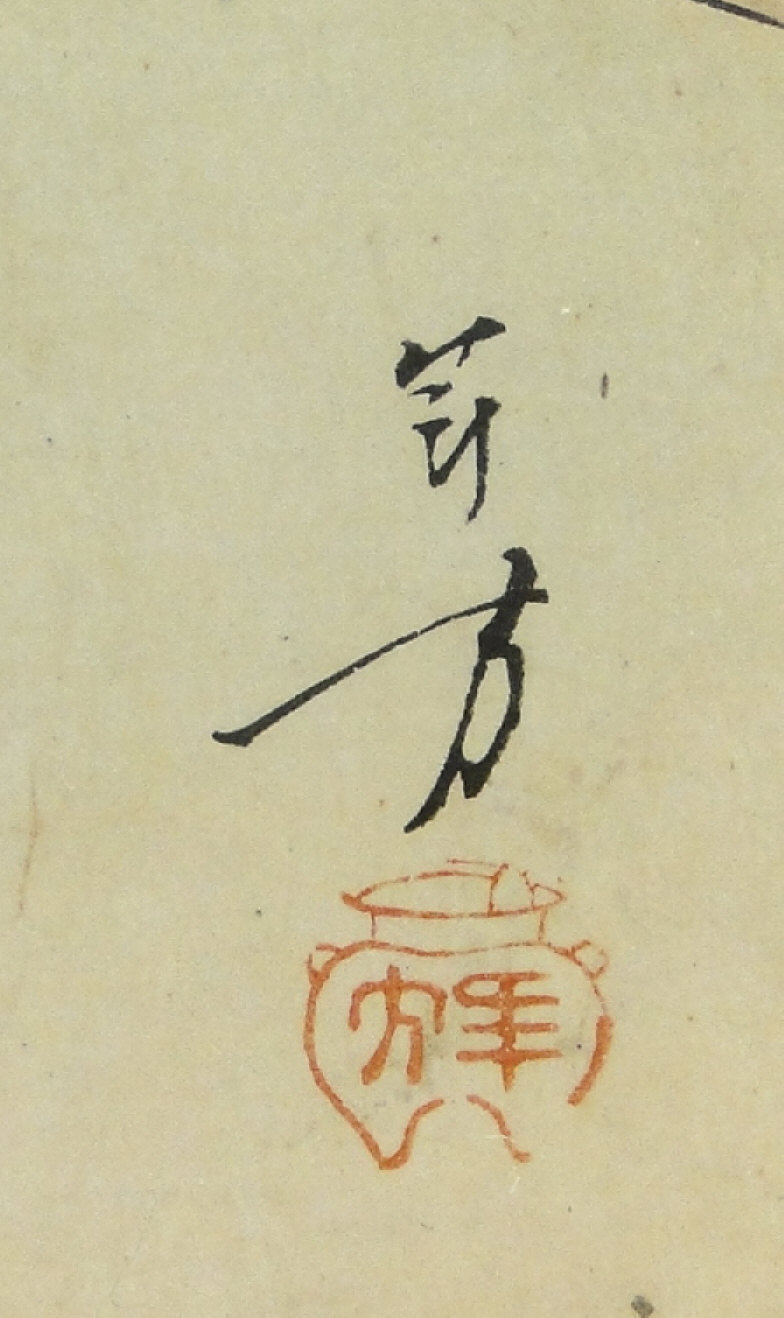 年方
年方